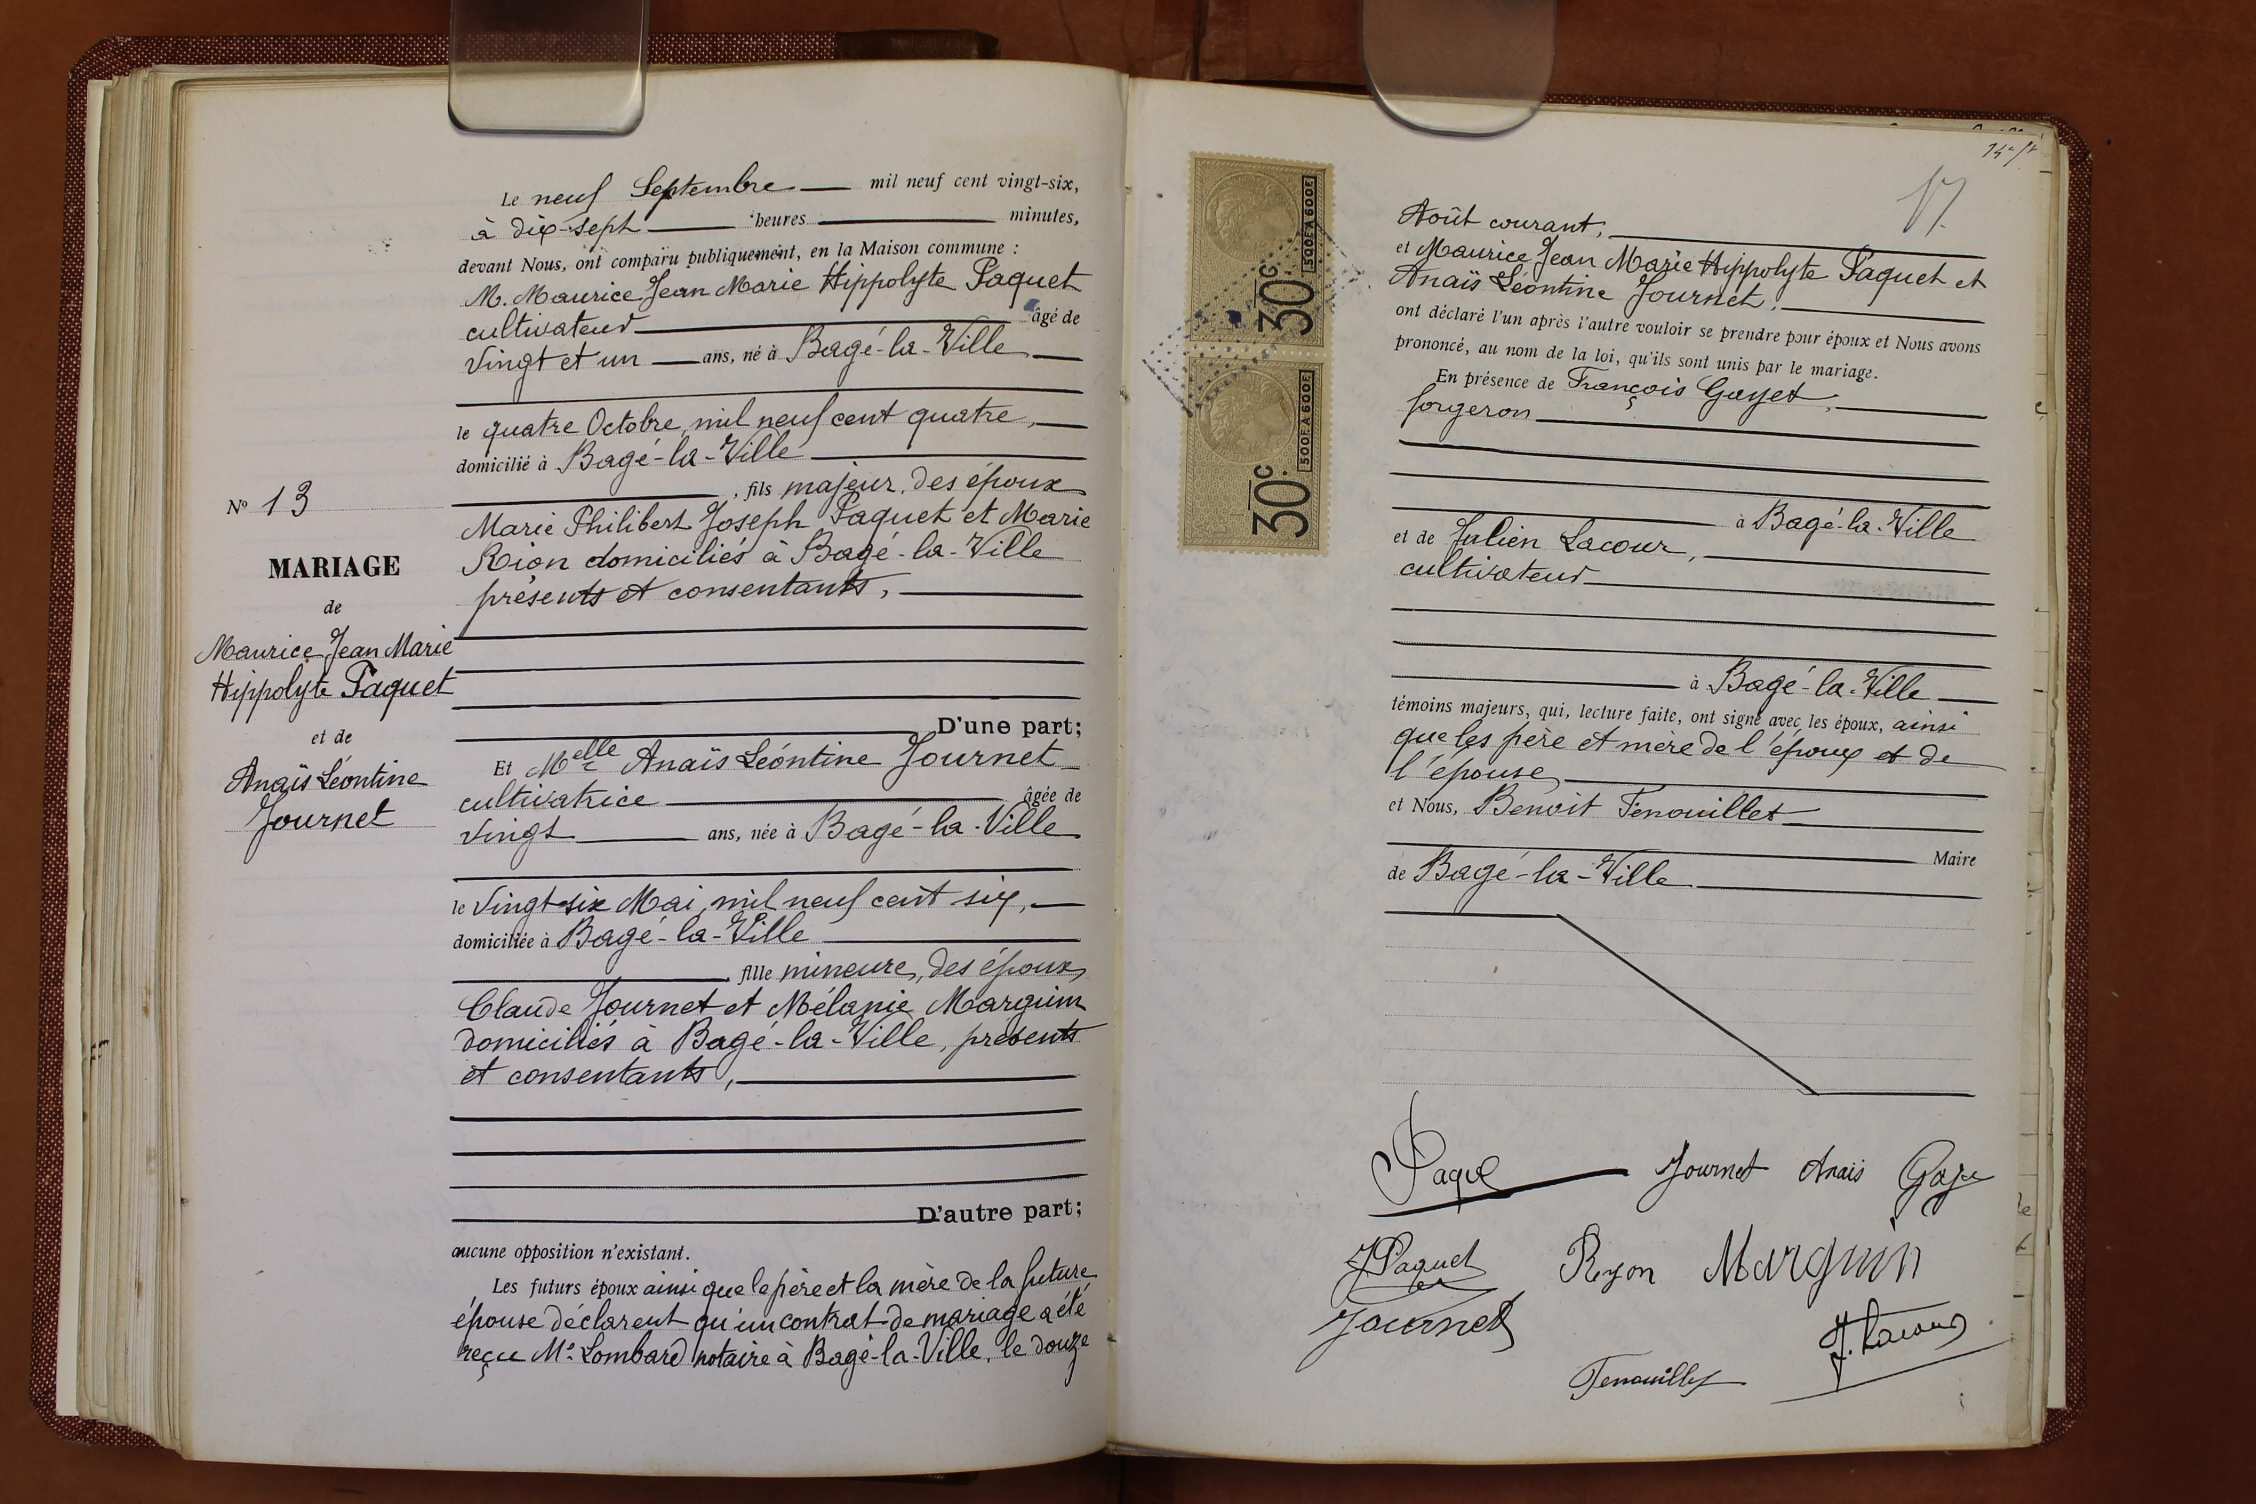 Le neuf Septembre mil neuf cent vingt-six,
à dix-sept heures minutes,
devant Nous, ont comparu publiquement, en la Maison commune :
M. Maurice Jean Marie Hippolyte Paquet
cultivateur âgé de
vingt et un ans, né à Bagé-la-Ville
le quatre Octobre mil neuf cent quatre,
domicilié à Bagé-la-Ville
, fils majeur, des époux
Marie Philibert Joseph Paquet et Marie
Rion domiciliés à Bagé-la-Ville
présents et consentants,
D'une part;
Et Melle Anaïs Léontine Journet
cultivatrice âgée de
vingt ans, née à Bagé-la-Ville
le vingt-six Mai mil neuf cent six,
domiciliée à Bagé-la-Ville
, fille mineure, des époux
Claude Journet et Mélanie Marguin
domiciliés à Bagé-la-Ville, présents
et consentants,
D'autre part;
aucune opposition n'existant.
Les futurs époux ainsi que le père et la mère de la future
épouse déclarent qu'un contrat de mariage a été
reçu Me Lombard notaire à Bagé-la-Ville, le douze
No 13
MARIAGE
de
Maurice Jean Marie
Hippolyte Paquet
et de
Anaïs Léontine
Journet
30c.
500F À 600F
30c.
500F À 600F
17.
Août courant,
et Maurice Jean Marie Hippolyte Paquet et
Anaïs Léontine Journet,
ont déclaré l'un après l'autre vouloir se prendre pour époux et Nous avons
prononcé, au nom de la loi, qu'ils sont unis par le mariage.
En présence de François Gayet,
forgeron
à Bagé-la-Ville
et de Julien Lacour,
cultivateur
à Bagé-la-Ville
témoins majeurs, qui, lecture faite, ont signé avec les époux, ainsi
que les père et mère de l'époux et de
l'épouse
et Nous, Benoit Fenouillet
Maire
de Bagé-la-Ville
Journet Anais
J Paquet Ryon Marguin
Journet
J. Lacour
Fenouillet